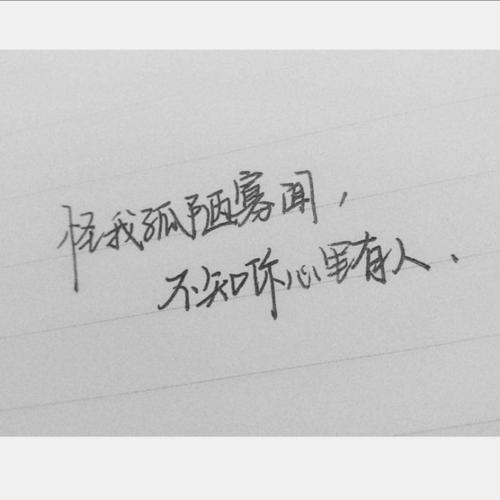 怪我孤陋寡闻，
不知你心里有人．